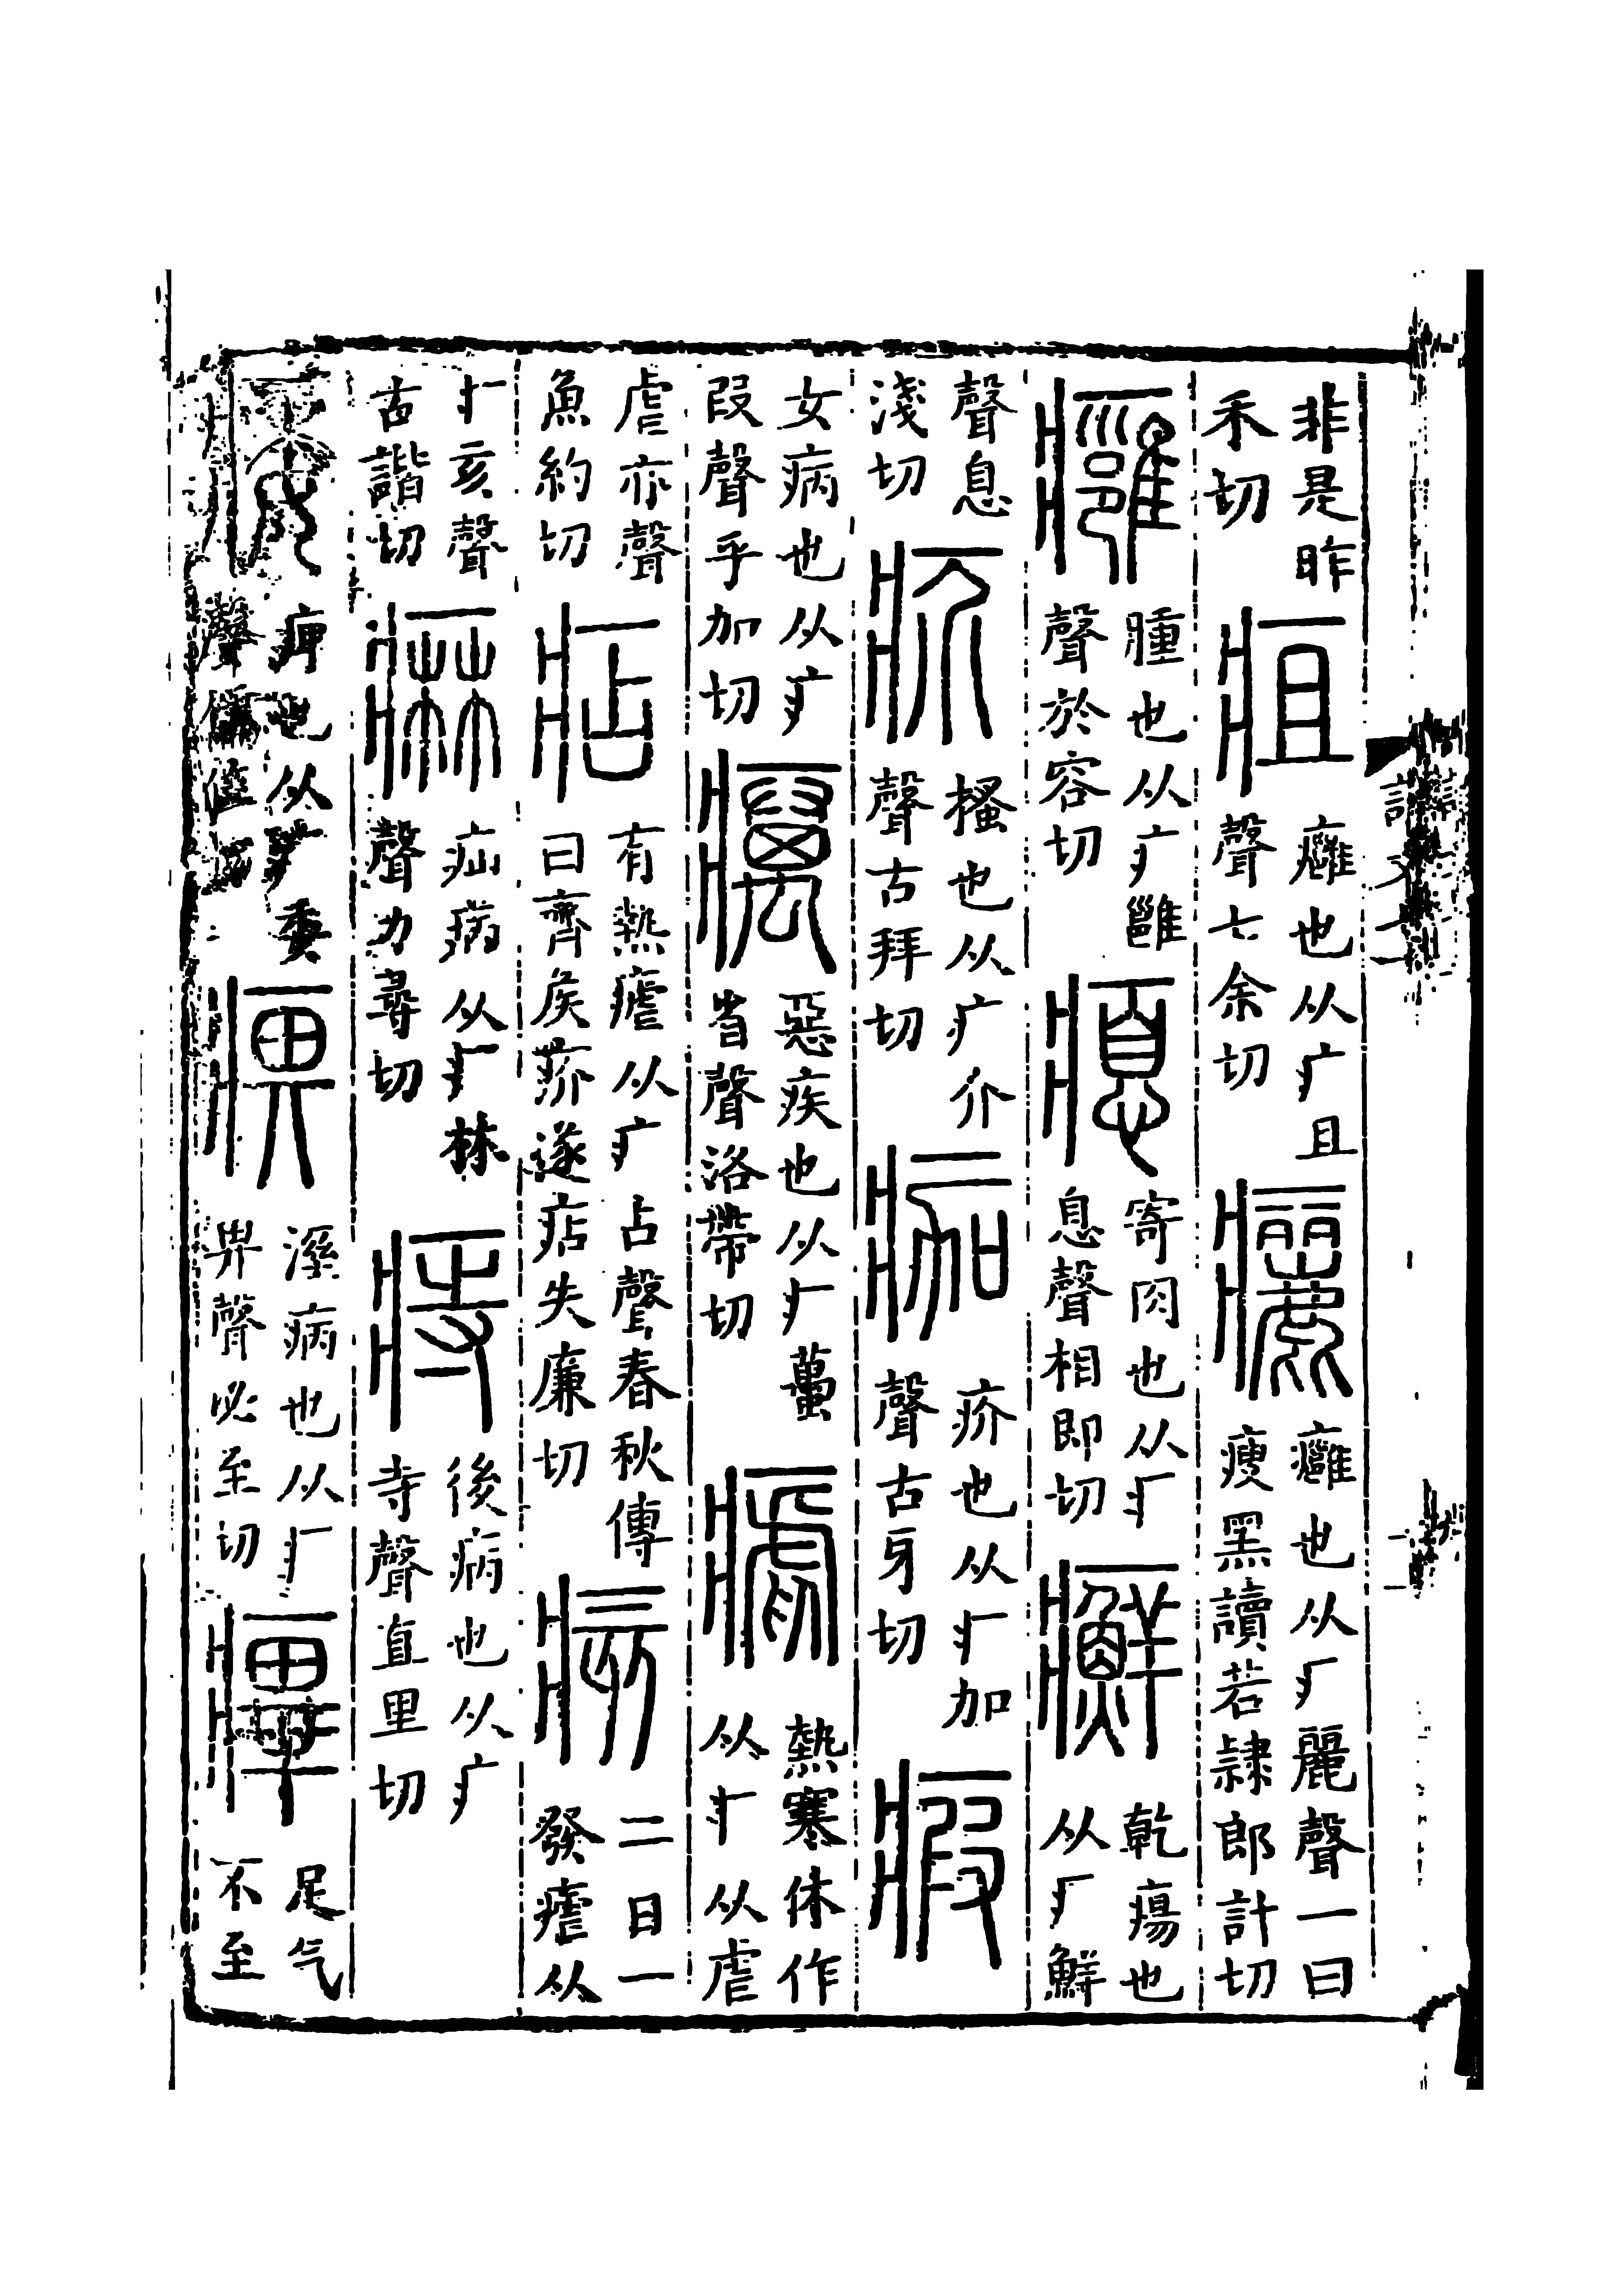 非是昨禾切疽癰也从疒且聲七余切𤻤癰也从疒麗聲一曰瘦黑讀若隸郎計切
癰腫也从疒雝聲於容切瘜寄肉也从疒息聲相即切癬乾瘍也从疒鮮
聲息淺切疥搔也从疒介聲古拜切痂疥也从疒加聲古牙切瘕
女病也从疒叚聲乎加切癘惡疾也从疒蠆省聲洛帶切瘧熱寒休作从疒从虐
虐亦聲魚約切痁有熱瘧从疒占聲春秋傳曰齊矦疥遂痁失廉切痎二日一發瘧从
疒亥聲古諧切痳疝病从疒林聲力尋切痔後病也从疒寺聲直里切
痿痹也从疒委聲儒隹切痹溼病也从疒畀聲必至切㿙足气不至